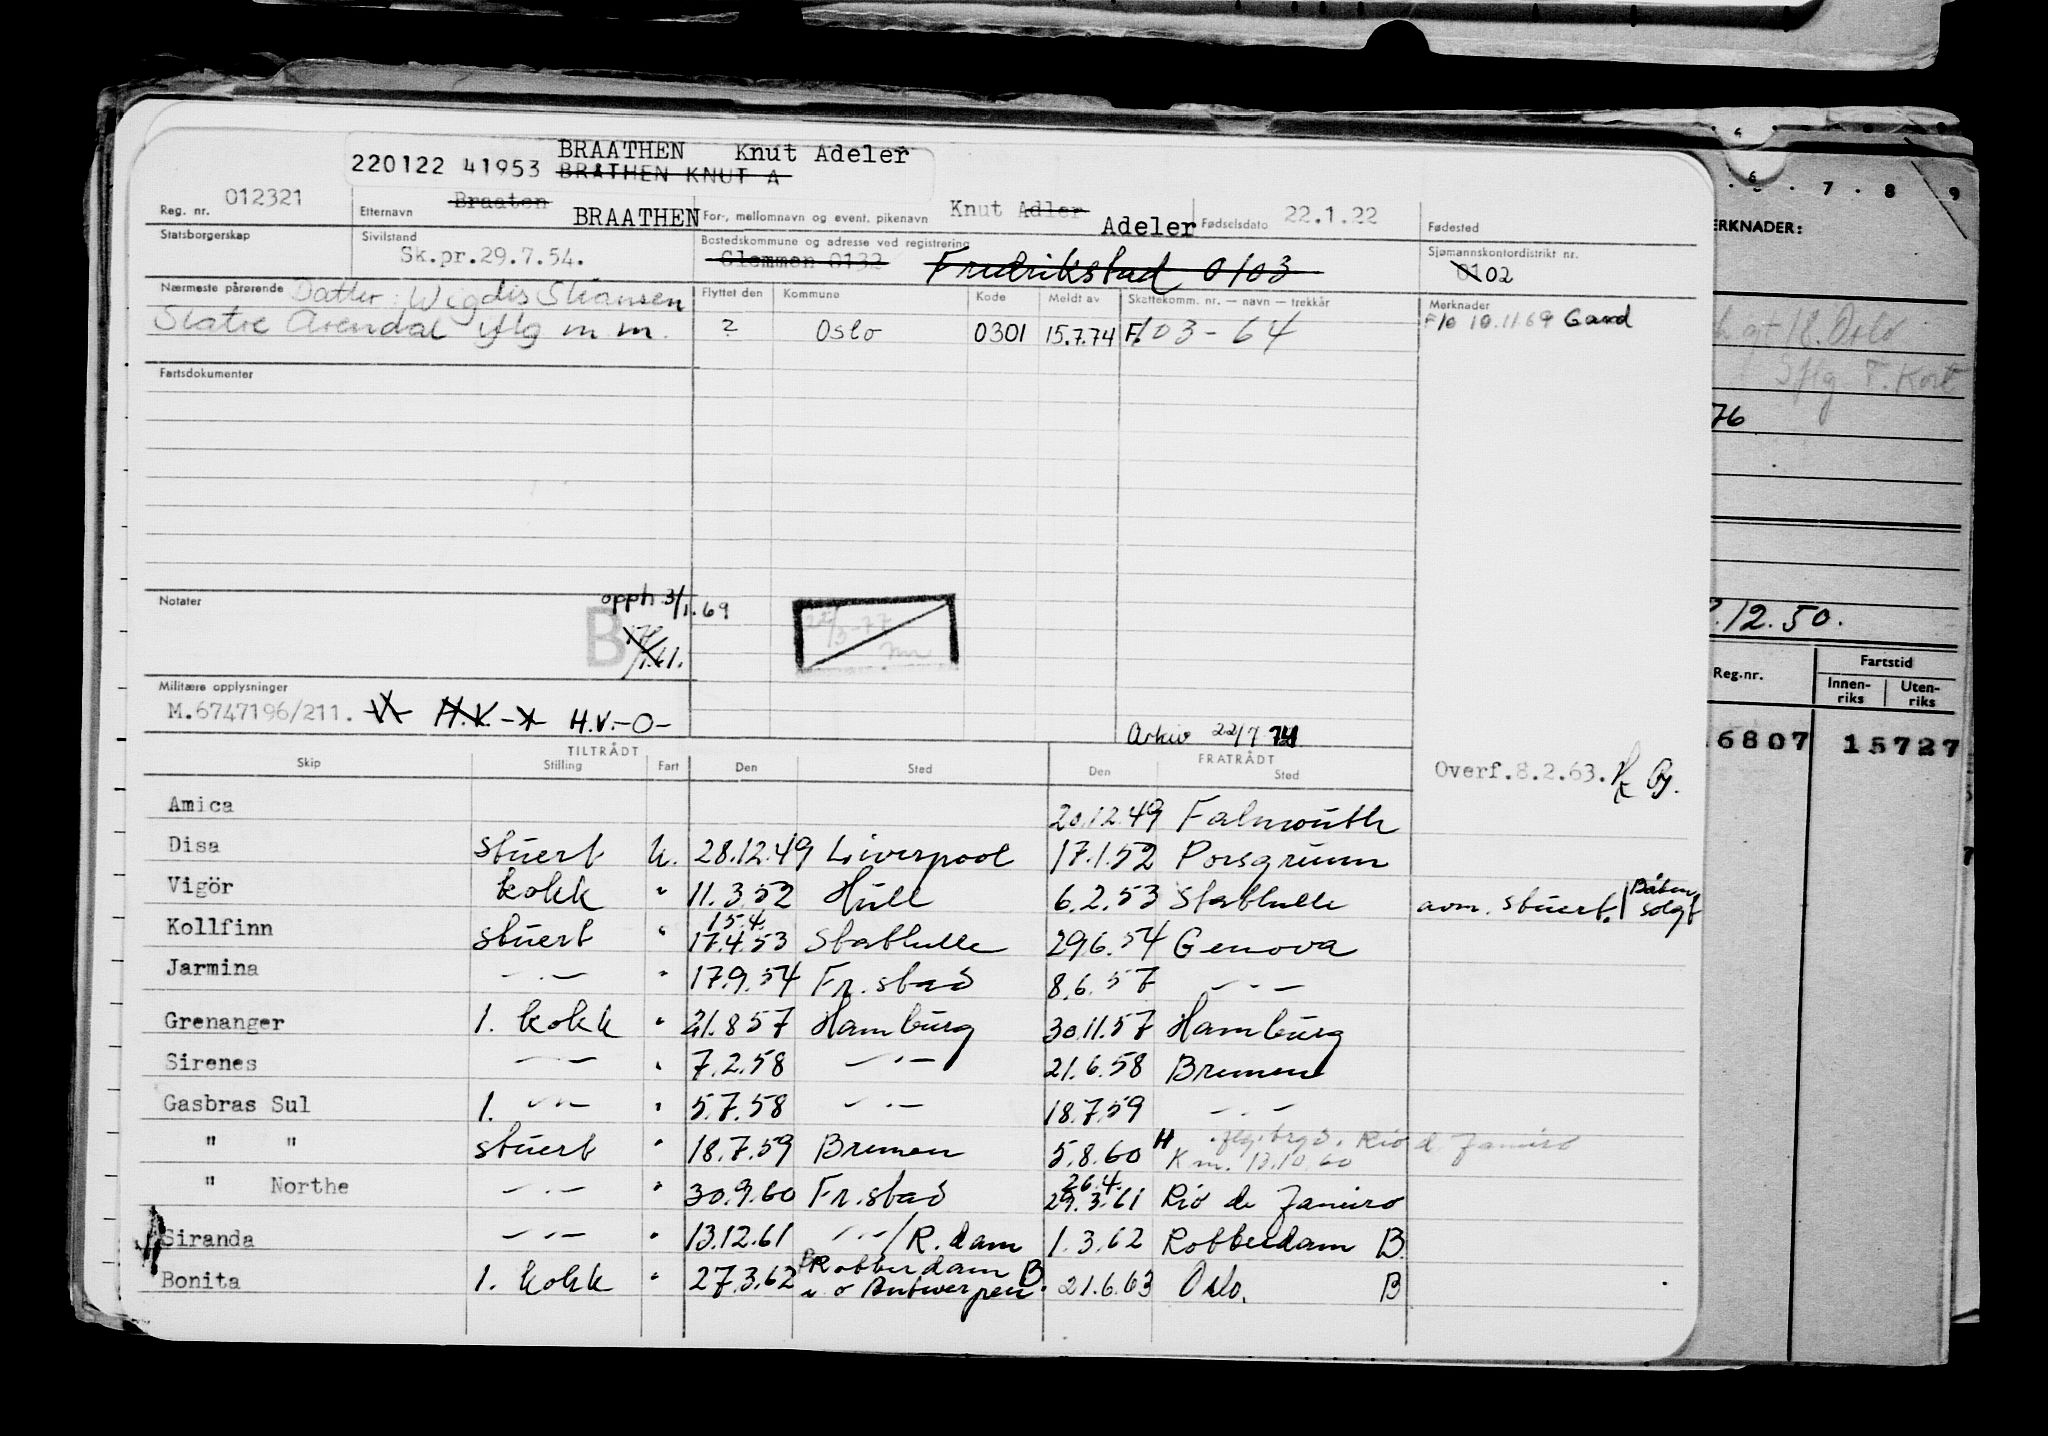 BRAATHEN Knut Adeler
220122 41953 BRÅTHEN KNUT A
Reg. nr. 012321 Etternavn Braaten BRAATHEN For-, mellomnavn og event. pikenavn Knut Adler Adeler Fødselsdato 22.1.22 Fødested
Statsborgerskap Sivilstand Sk.pr.29.7.54. Bostedskommune og adresse ved registrering Glemmen 0132 Fredrikstad 0103 Sjømannskontordistrikt nr. 0102
Nærmeste pårørende Datter: Wigdis Stiansen Flyttet den Kommune Kode Meldt av Skattekomm. nr. — navn — trekkår Merknader
Arendal m m. ? Oslo 0301 15.7.74 F/03-64 F/o 10.11.69
Fartsdokumenter
Notater opph 3/1.69
B
Militære opplysninger
M.6747196/211. H.V. H.V.-O-
Arkiv 22/7
TILTRÅDT FRATRÅDT
Skip Stilling Fart Den Sted Den Sted Overf.8.2.63.
Amica 20.12.49 Falmouth
Disa stuert U. 28.12.49 Liverpool 17.1.52 Porsgrunn
Vigör kokk " 11.3.52 Hull 6.2.53 Stathelle avm. stuert. Båten solgt
15.4.
Kollfinn stuert " 17.4.53 Stathelle 29.6.54 Genova
Jarmina —.— " 17.9.54 Fr.stad 8.6.57 —.—
Grenanger 1. kokk " 21.8.57 Hamburg 30.11.57 Hamburg
Sirenes —.— " 7.2.58 —.— 21.6.58 Bremen
Gasbras Sul 1. —.— " 5.7.58 —.— 18.7.59 —.—
" " stuert " 18.7.59 Bremen 5.8.60 H Rio d Janeiro
K m. 12.10.60
26.4.
" Northe —.— " 30.9.60 Fr.stad 29.3.61 Rio de Janeiro
Siranda —.— " 13.12.61 —.—/R.dam 1.3.62 Rotterdam B.
Bonita 1. kokk " 27.3.62 Rotterdam B 21.6.63 Oslo. B
Antwerpen
4
6 7 8 9
ERKNADER:
gt 18. Oslo
Kort
76
.12.50.
Reg.nr. Fartstid
Innen-riks Uten-riks
6807 15727